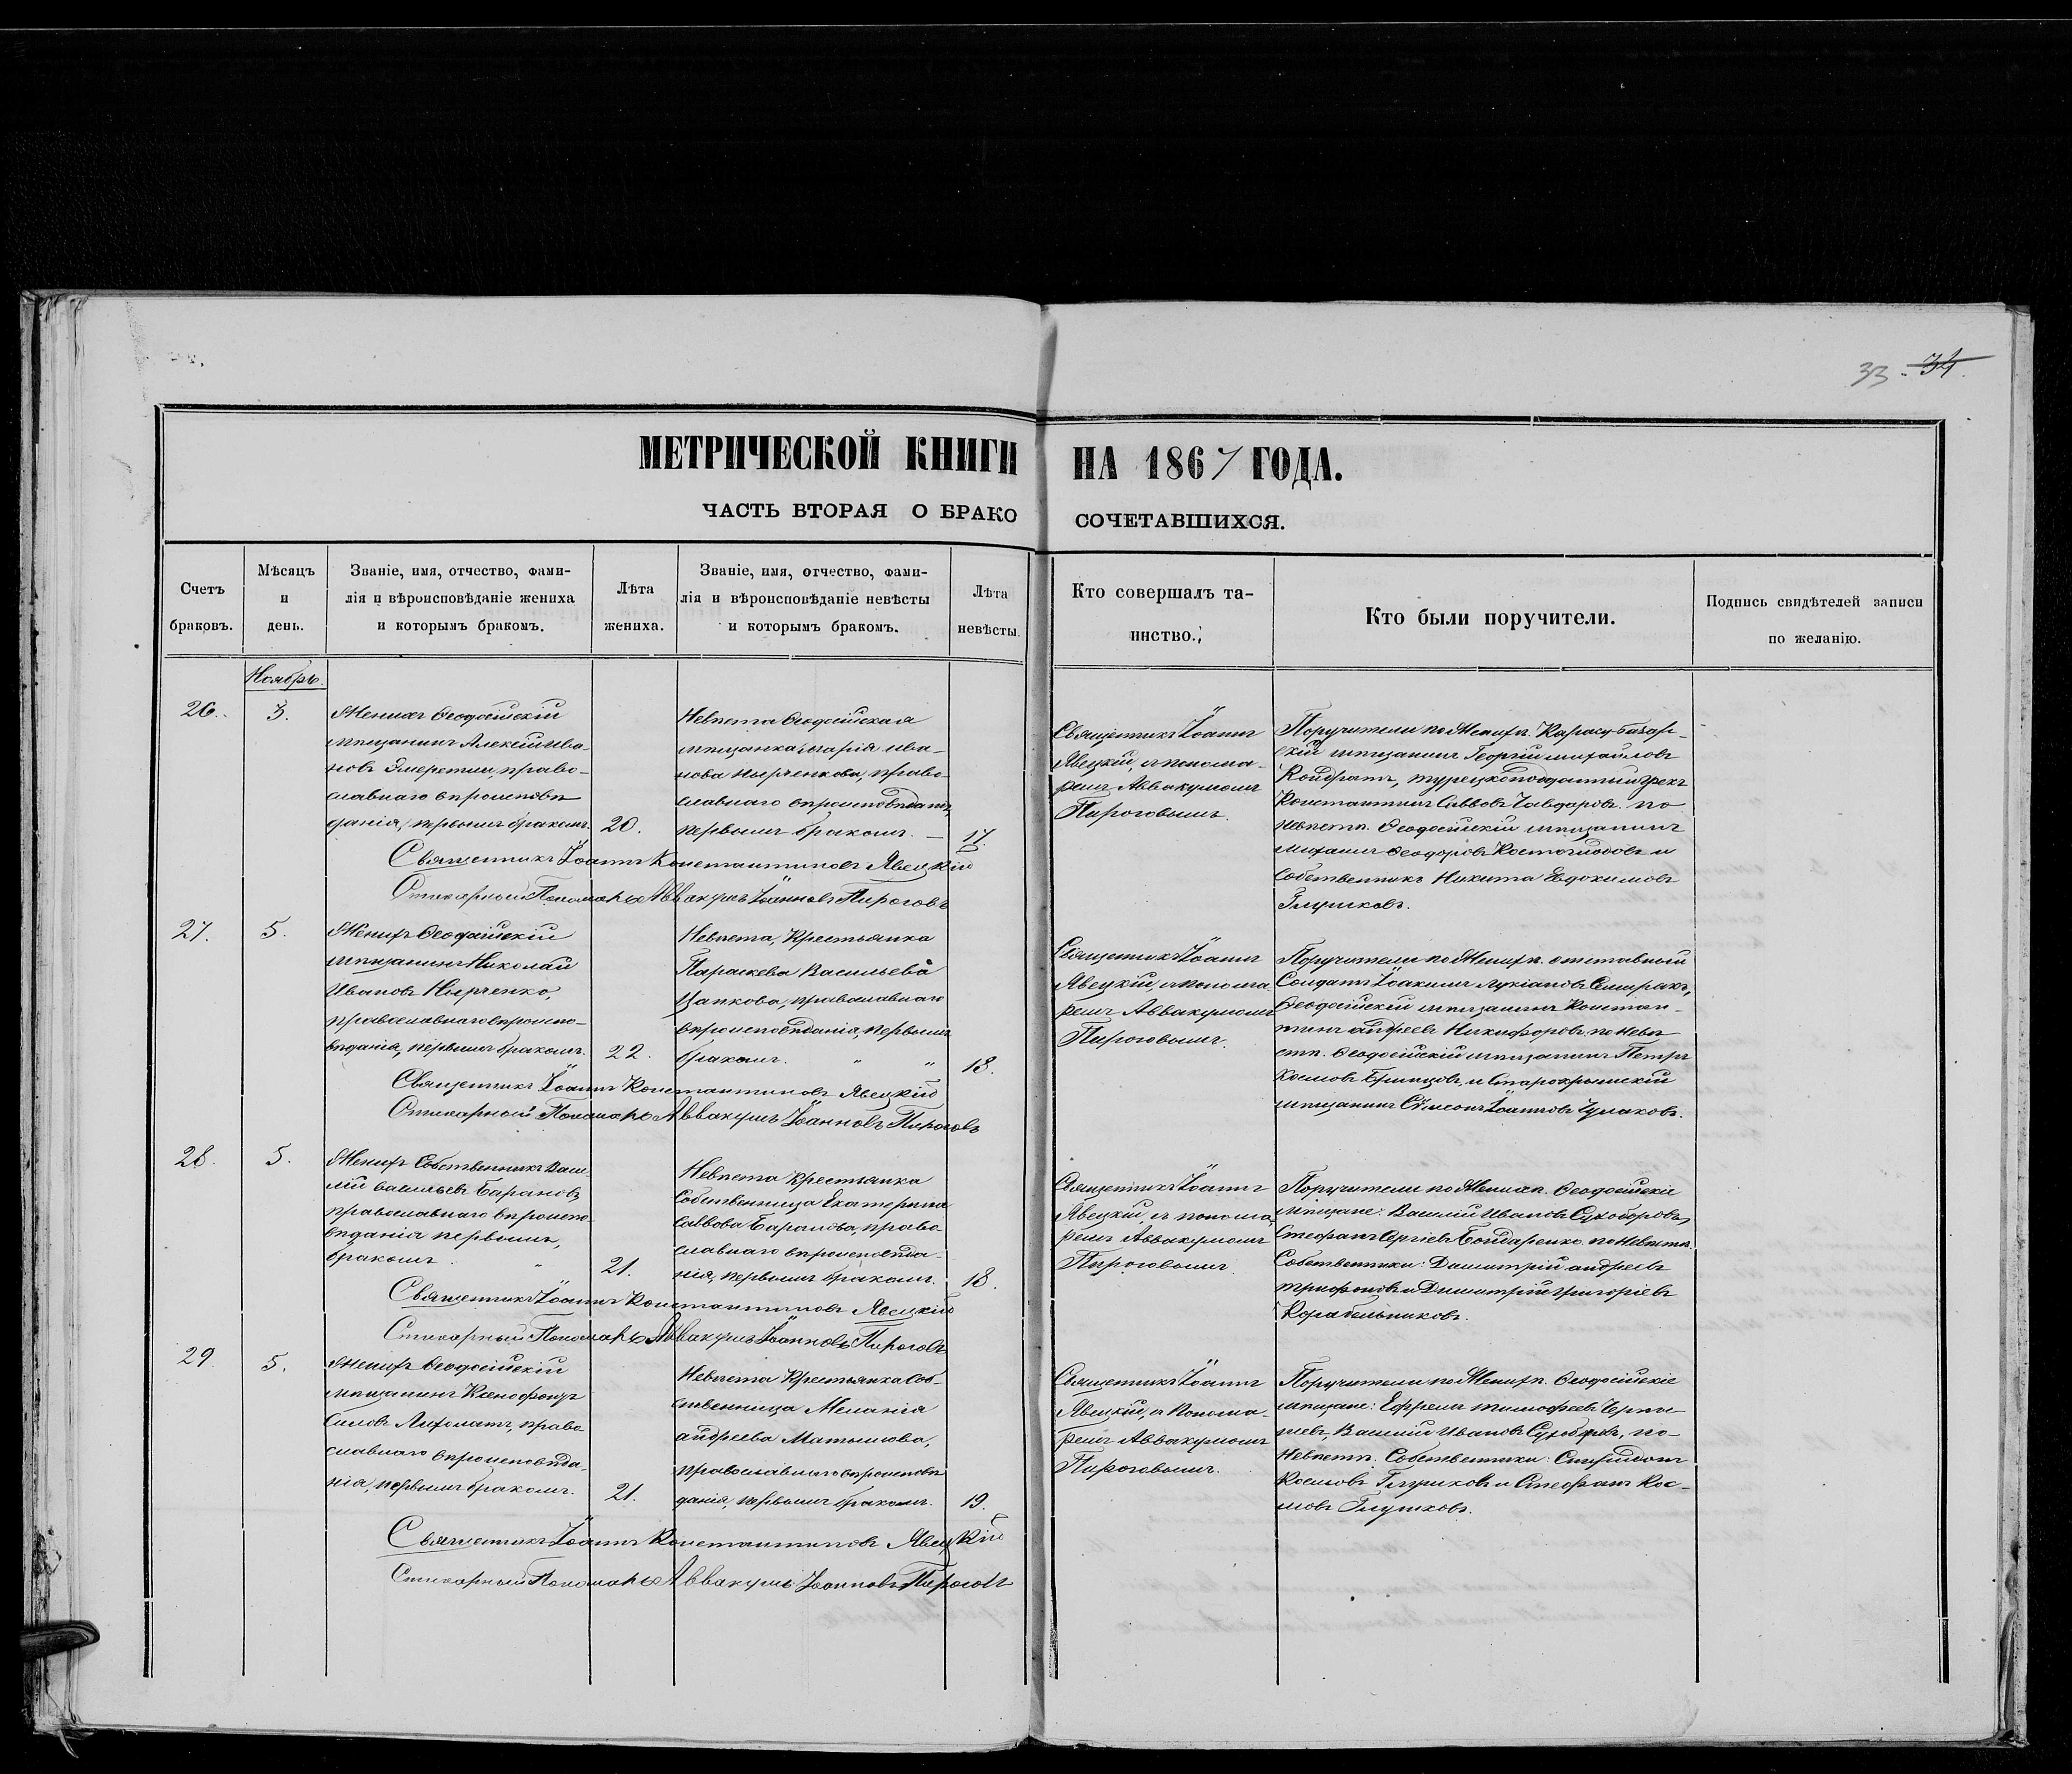 33. 34.
МЕТРИЧЕСКОЙ КНИГИ НА 1867 ГОДА.
ЧАСТЬ ВТОРАЯ О БРАКОСОЧЕТАВШИХСЯ.
Счетъ браковъ.
Мѣсяцъ и день.
Званіе, имя, отчество, фами-
лія и вѣроисповѣданіе жениха
и которымъ бракомъ.
Лѣта жениха.
Званіе, имя, отчество, фами-
лія и вѣроисповѣданіе невѣсты
и которымъ бракомъ.
Лѣта невѣсты.
Кто совершалъ та-
инство.
Кто были поручители.
Подпись свидѣтелей записи
по желанію.
Ноябрь.
26.
3.
Женихъ Ѳеодосійскій
мѣщанинъ Алексій Ива-
новъ право-
славнаго вѣроисповѣ
данія, первымъ бракомъ.
20.
Невѣста Ѳеодосійская
мѣщанка Марія Ива-
нова Нырченкова, право-
славнаго вѣроисповѣданія,
первымъ бракомъ. —
17.
Священникъ Іоаннъ
Явецкій, съ понома-
ремъ Аввакумомъ
Пироговымъ.
Поручители по Женихѣ. Карасу-базар-
скій мѣщанинъ Георгій Михайловъ
турецкоподданный грекъ
Константинъ Саввовъ Чавдаровъ. по
невѣстѣ. Ѳеодосійскій мѣщанинъ
Михаилъ Ѳеодоровъ и
собственникъ Никита Евдокимовъ
Глушковъ.
Священникъ Іоаннъ Константиновъ Явецкій
Стихарный Пономарь Аввакумъ Іоанновъ Пироговъ
27.
5.
Женихъ Ѳеодосійскій
мѣщанинъ Николай
Ивановъ Нырченко,
православнаго вѣроиспо-
вѣданія, первымъ бракомъ.
22.
Невѣста, Крестьянка
Параскева Васильева
Цапкова, православнаго
вѣроисповѣданія, первымъ
бракомъ. " "
18.
Священникъ Іоаннъ
Явецкій, съ понома
ремъ Аввакумомъ
Пироговымъ.
Поручители по Женихѣ. отставный
Солдатъ Іоакимъ Лукіановъ
Ѳеодосійскій мѣщанинъ Констан-
тинъ Андреевъ Никифоровъ. по невѣ
стѣ. Ѳеодосійскій мѣщанинъ Петръ
Космовъ и Старокрымскій
мѣщанинъ Сѵмеонъ Іоанновъ Чумаковъ.
Священникъ Іоаннъ Константиновъ Явецкій
Стихарный Пономарь Аввакумъ Іоанновъ Пироговъ
28.
5.
Женихъ Собственникъ Васи
лій Васильевъ Барановъ,
православнаго вѣроиспо-
вѣданія первымъ,
бракомъ. "
21.
Невѣста крестьянка
Собственница Екатерина
Саввова право-
славнаго вѣроисповѣда-
нія, первымъ бракомъ.
18.
Священникъ Іоаннъ
Явецкій, съ понома-
ремъ Аввакумомъ
Пироговымъ
Поручители по Женихѣ. Ѳеодосійскіе
мѣщане: Василій Ивановъ Сухоборовъ,
Стефанъ Сергіевъ Бондаренко. по Невѣстѣ.
Собственники: Димитрій Андреевъ
Трифоновъ и Димитрій Григоріевъ
Корабельниковъ.
Священникъ Іоаннъ Константиновъ Явецкій
Стихарный Пономарь Аввакумъ Іоанновъ Пироговъ
29.
5.
Женихъ Ѳеодосійскій
мѣщанинъ Ксенофонтъ
Силовъ право-
славнаго вѣроисповѣда-
нія, первымъ бракомъ.
21.
Невѣста Крестьянка Соб-
ственница Меланія
Андреева
православнаго вѣроисповѣ
данія, первымъ бракомъ.
19.
Священникъ Іоаннъ
Явецкій, съ Понома-
ремъ Аввакумомъ
Пироговымъ.
Поручители по Женихѣ. Ѳеодосійскіе
мѣщане: Ефремъ Тимофеевъ
Василій Ивановъ Сухоборовъ, по-
Невѣстѣ. Собственники: Спиридонъ
Космовъ Глушковъ и Стефанъ Кос-
мовъ Глушковъ.
Священникъ Іоаннъ Константиновъ Явецкій
Стихарный Пономарь Аввакумъ Іоанновъ Пироговъ